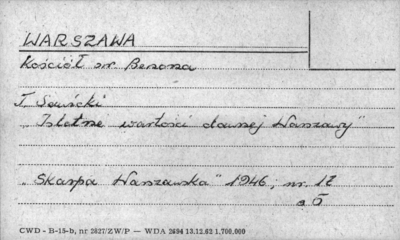 WARSZAWA
Kościół św. Benona
"Istotne wartości dawnej Warszawy"
"Skarpa Warszawska" 1946, nr. 12
CWD - B-15-b, nr 2827/ZW/P — WDA 2694 13.12.62 1.700.000